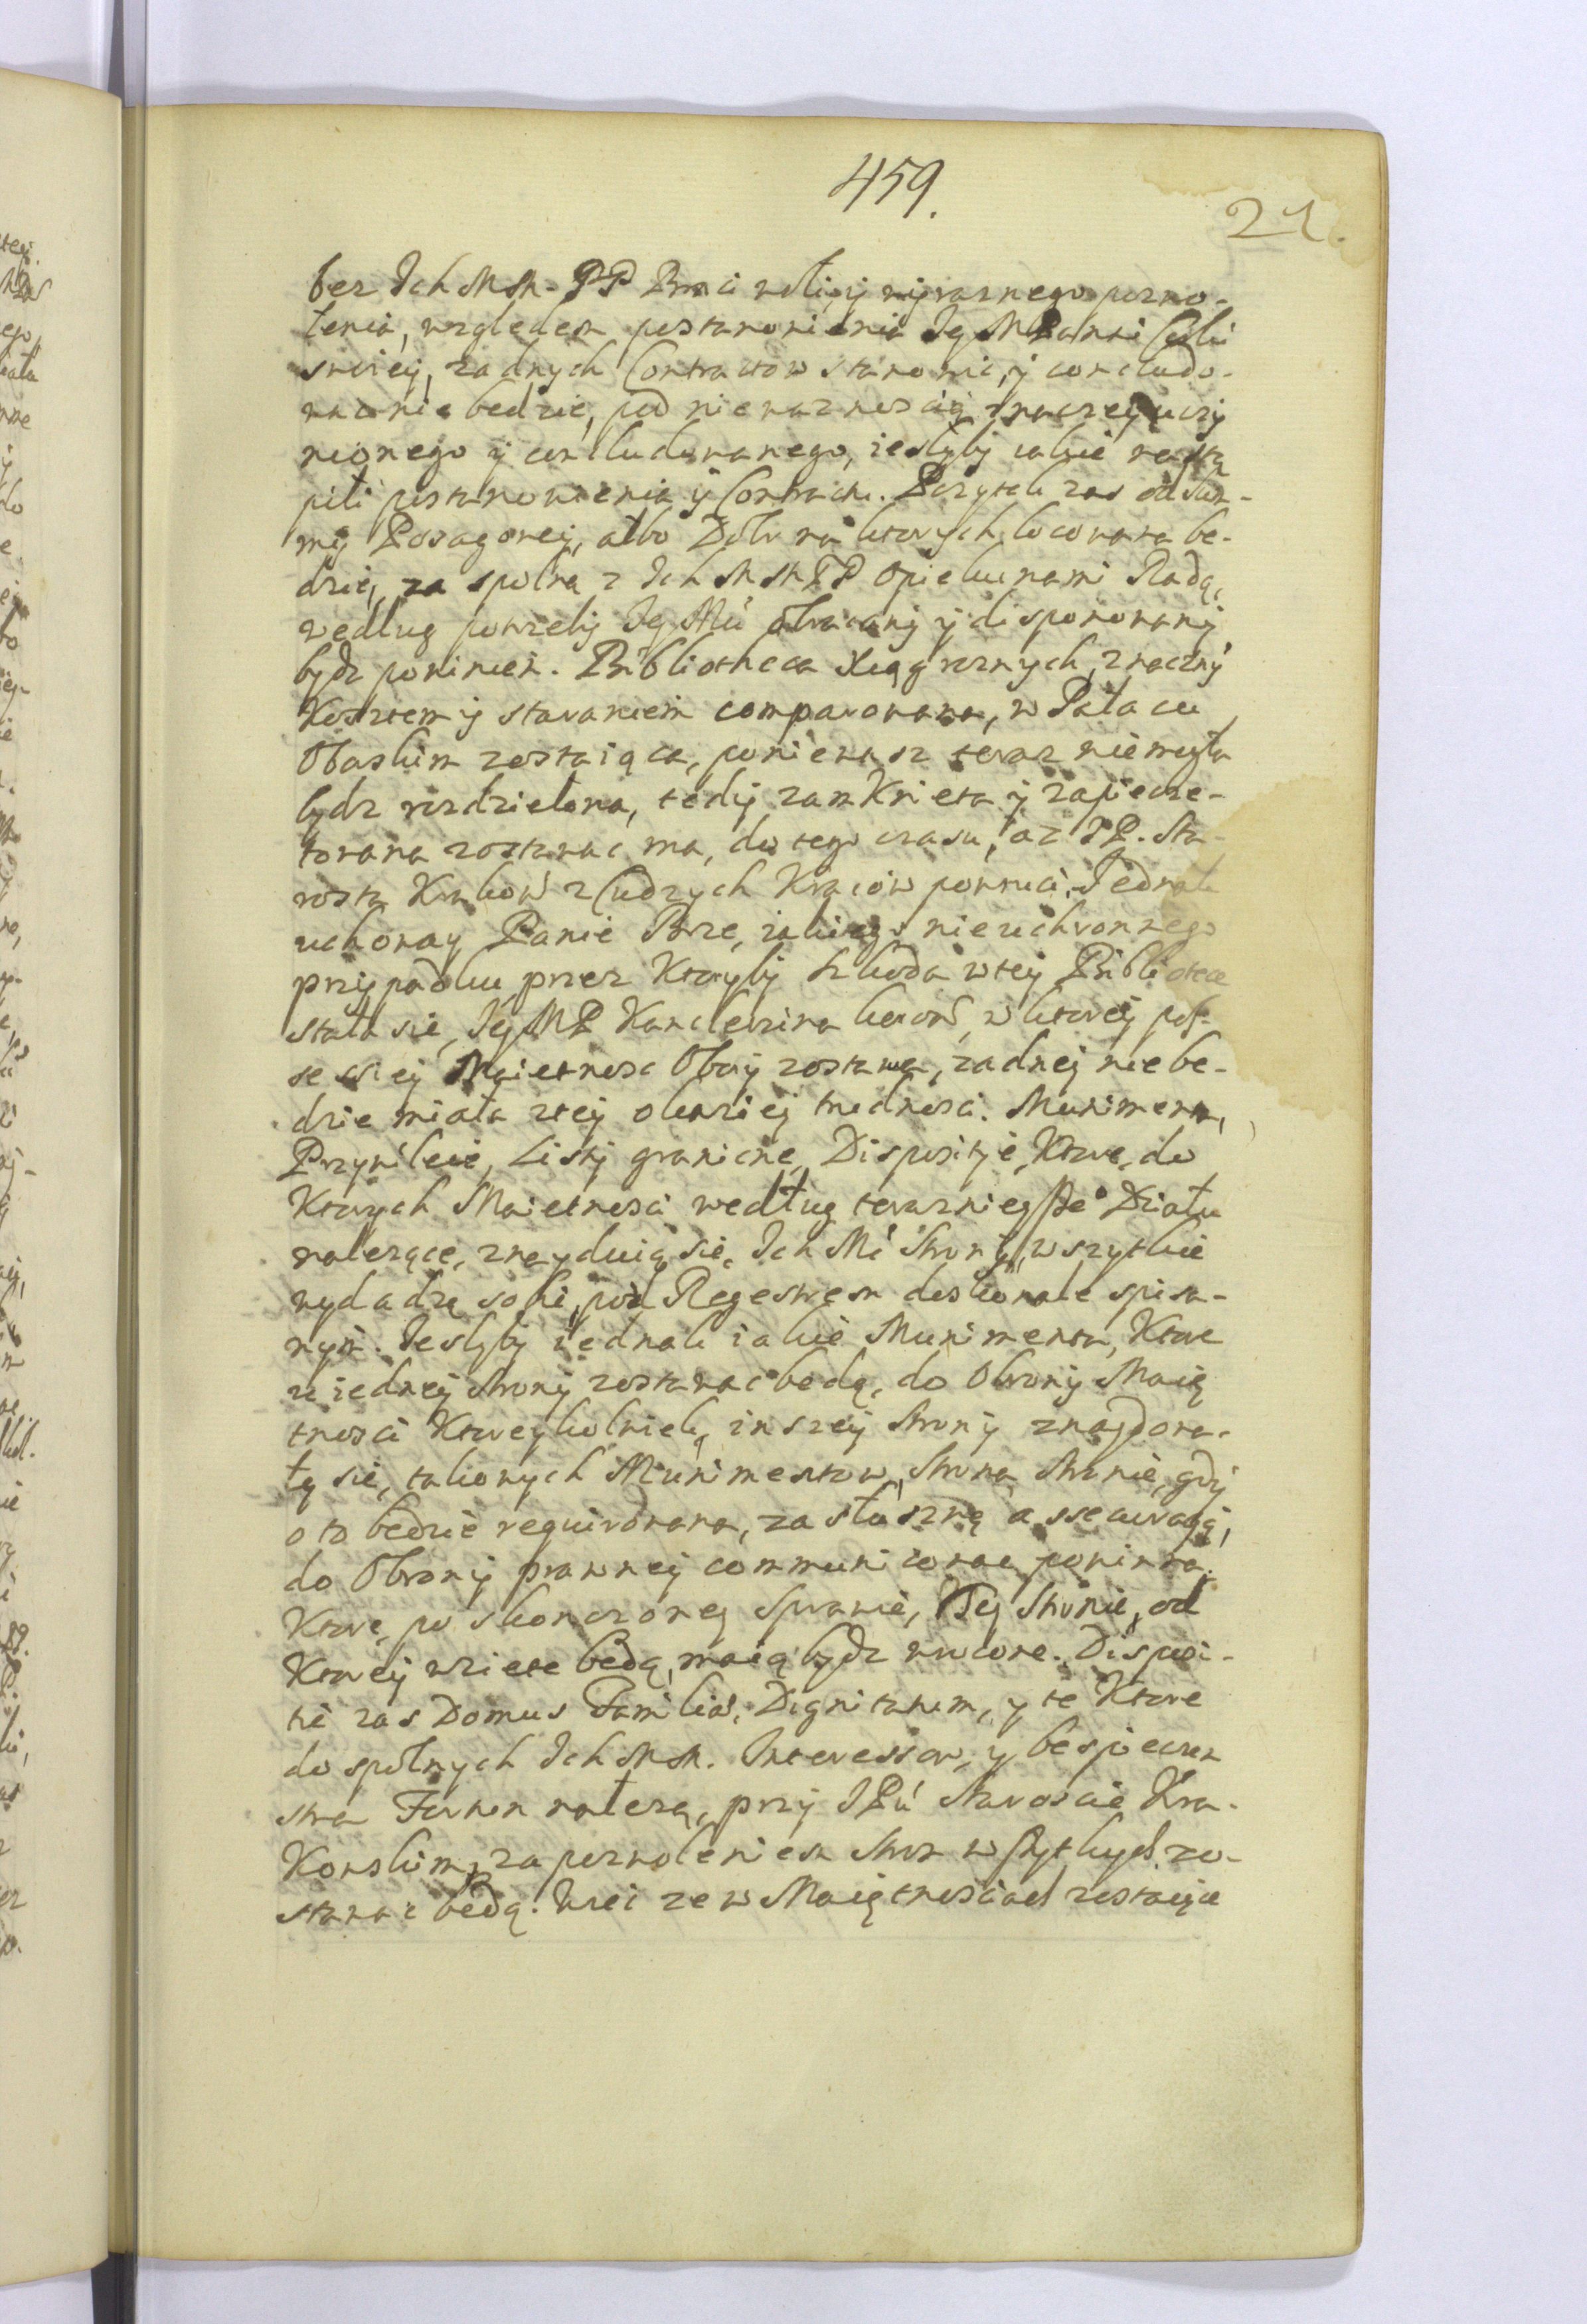 459.
21.
bez Ich Mm. PP Braci woli, y wyraznego pozwo-
lenia, wzgledem postanowienia Jey MPanni Corki
swoiey, zadnych Contractow stanowic, y concludo-
wac nie bedzie, pod niewaznoscią inaczey uczy
nionego y conkludowanego, iesliby iakie nastą
pili postanowienia y Contracti. Pozytek zas od Sum-
my Posagowey, albo Dobr na ktorych locowana be-
dzie, za spolną z Ich Mm PP Opiekunami Radą,
według potrzeby Jey Mci obracany y disponowany
bydz powinien. Bibliotheca Xiąg roznych, znacznÿ
Kosztem y staraniem comparowana, w Pałacu
Obaskim zostaiąca, poniewasz teraz nie mogła
bydz rozdzielona, tedy zamknieta y zapiecze-
towana zostawac ma, do tego czasu, az JP. Sta-
rosta Krakow z Cudzych Kraiow powruci. Jednak
uchoway Panie Boze, iakiego nieuchronnego
przypadku, przez Ktoryby szkoda w tey Bibliotece
stała sie, Jey MP Kanclerzina Koron, w ktorey pos-
sessiey Maietnosc Obory zostawa, zadney nie be-
dzie miała ztey okaziey trudnosci. Munimenta,
Przywileie, Listy graniczne, Dispositie, Ktore, do
Ktorych Maietnosci według terazniegsze Działu
nalezące, znayduią sie, Ich Mć Strony, wszytkie
wydadzą sobie, pod Regestrem doskonale spisa-
nym. Jesliby iednak iakie Munimenta, Ktore
u iedney strony zostawac bedą, do Obrony Maię
tnosci Ktoreykolwiek, inszey strony znaydowa-
ły sie, takowych Munimentow, Strona Stronie, gdy
o to bedzie requirowana, za słuszną assecuracyą,
do Obrony prawney communicowac powinna.
Ktore, po skonczoney Sprawie, Tey Stronie, od
Ktorey wziete bedą, maią bydz wrocone. Disposi-
tie zas Domus Familiae, Dignitatum, y te Ktore
do spolnych Ich Mm. Interessow, y bespieczen
stwa Fortun nalezą, przy JPu Staroscie Kra-
Kowskim, za pozwoleniem stron wszytkych zo-
stawac bedą. Wsci ze w Maiętnosciach zostaiące